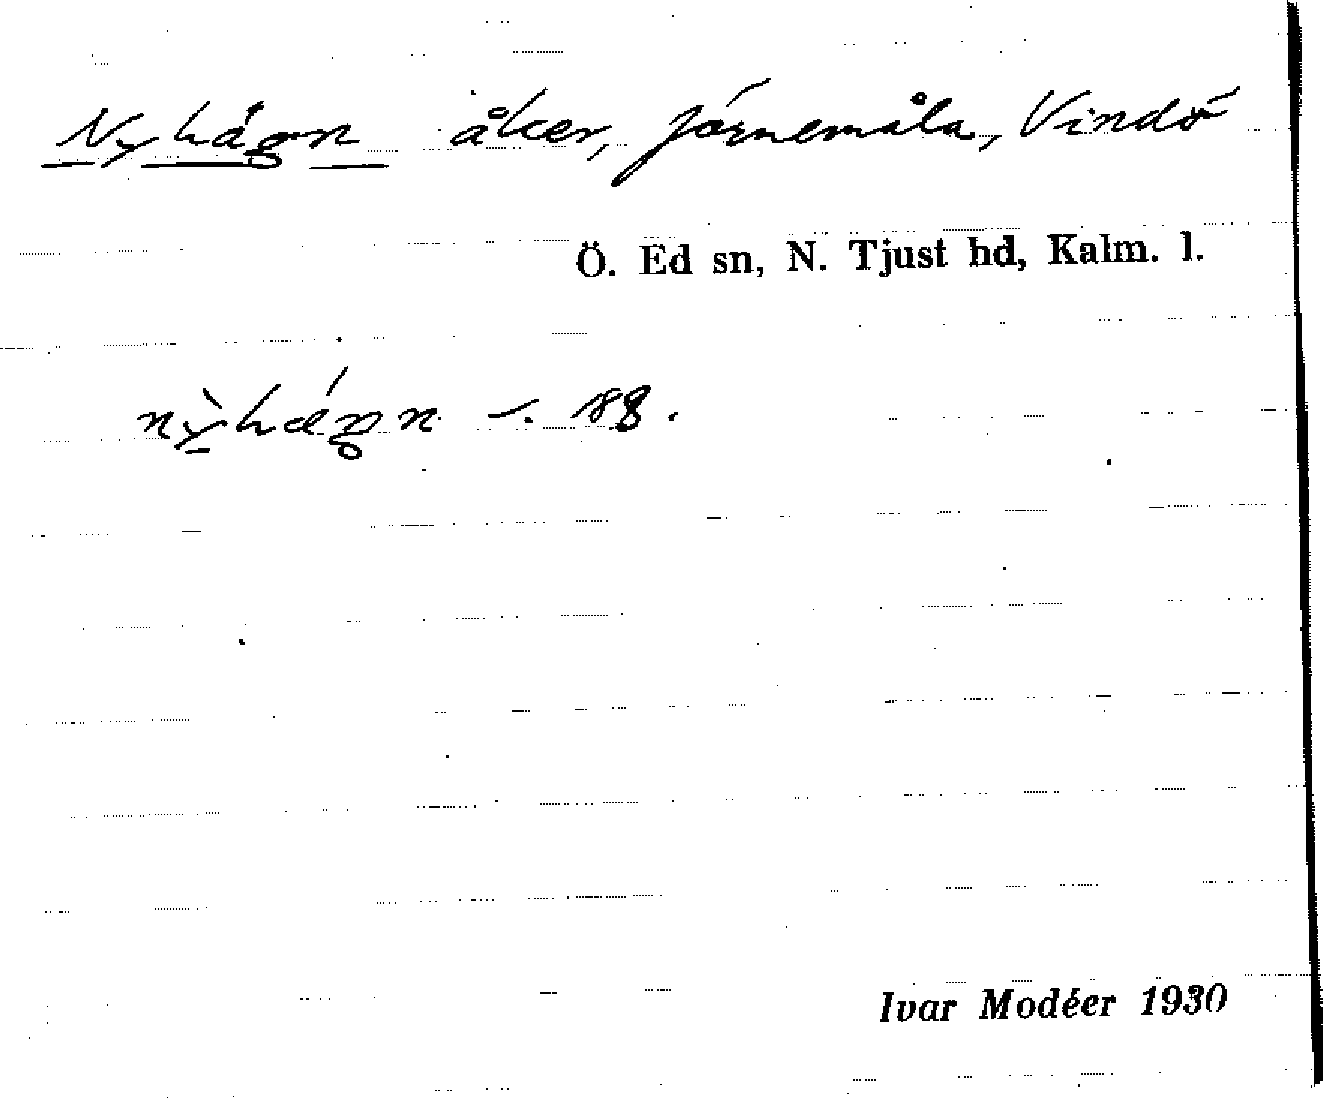 Nyhågn åker, Järnemåla, Vindö
Ö. Ed sn, N. Tjust hd, Kalm. l.
88.
Ivar Modéer 1930